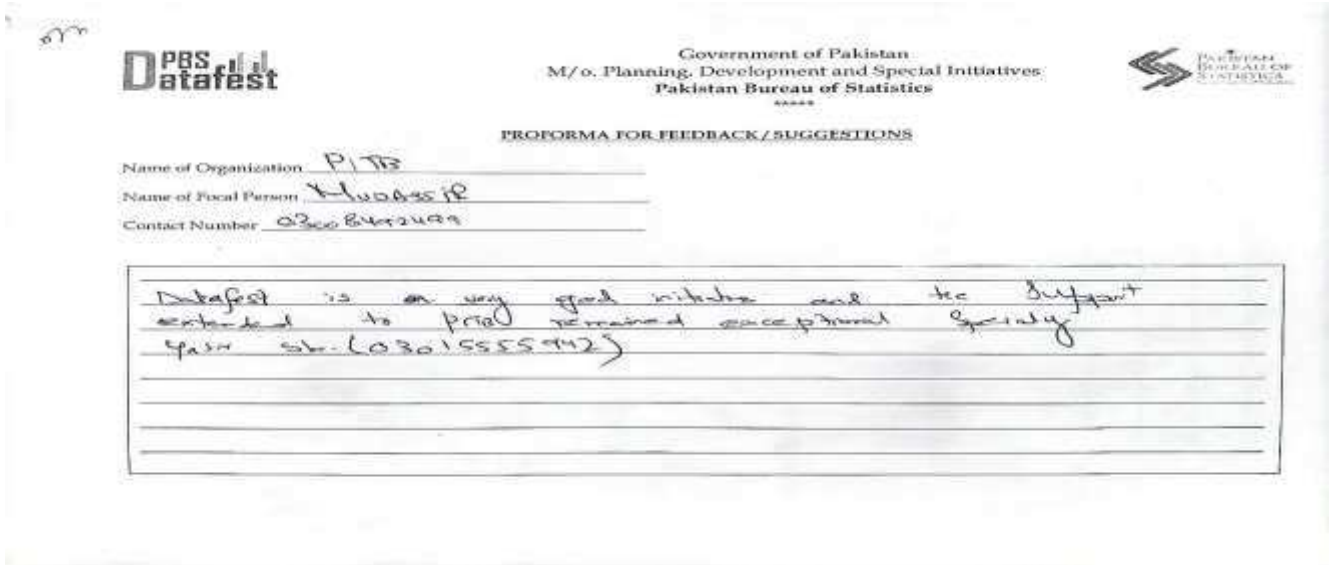 PBS
Datafest
Government of Pakistan
M/o. Planning, Development and Special Initiatives
Pakistan Bureau of Statistics
*****
PAKISTAN
BUREAU OF
STATISTICS
PROFORMA FOR FEEDBACK/SUGGESTIONS
Name of Organization PITB
Name of Focal Person Mudassir
Contact Number
Datafest is a very good initiative and the Support
extended to PITB remained exceptional Specialy
Yasir sb. (03015555942)